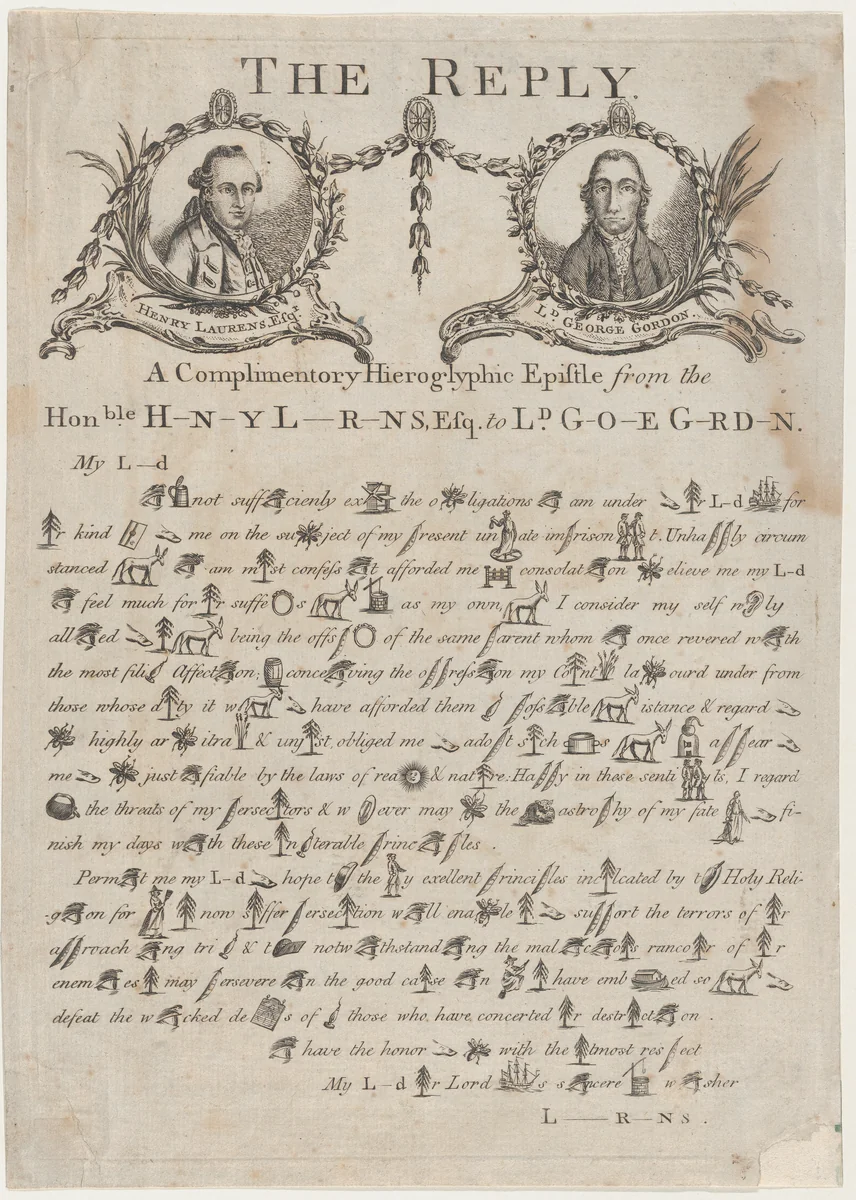 THE REPLY.
HENRY LAURENS, Esqr.
LD. GEORGE GORDON.
A Complimentory Hieroglyphic Epistle from the
Honble H–N–Y L—R–NS, Esq. to LD. G–O–E G–RD–N.
My L–d
not suff ciently ex the o ligations am under r L–d for
r kind me on the su ject of my resent un ate im rison t. Unha ly circum
stanced am m st confess t afforded me consolat on elieve me my L–d
feel much for r suffe s as my own, I consider my self n ly
all ed being the offs of the same arent whom once revered w th
the most fili Affect on; conce ving the o ress on my Co nt la ourd under from
those whose d ty it w have afforded them oss ble istance & regard
highly ar itra & unj st, obliged me ado t s ch s a ear
me just fiable by the laws of rea & nat re: Ha y in these senti ts, I regard
the threats of my ersec tors & w ever may the astro hy of my fate fi-
nish my days w th these n terable rinc les .
Perm t me my L–d hope t the y exellent rinci les inc lcated by t Holy Reli-
-g on for now s ffer ersec tion w ll ena le su ort the terrors of r
a roach ng tri & t notw thstand ng the mal c o s ranco r of r
enem es may ersevere n the good ca se n have emb ed so
defeat the w cked de s of those who have concerted r destr ct on .
have the honor with the tmost res ect
My L–d r Lord s s ncere w sher
L—R–NS .